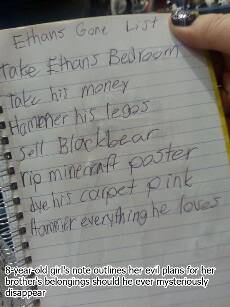 Ethans Gone List
Take Ethans Bedroom
take his money
Hammer his legos
sell Blackbear
rip minecraft poster
dye his carpet pink
Hammer everything he loves
8-year-old girl's note outlines her evil plans for her
brother's belongings should he ever mysteriously
disappear